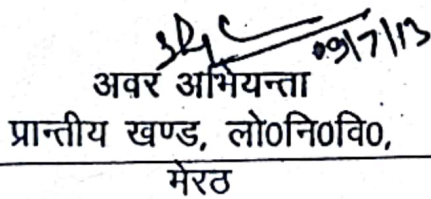 09/7/13
अवर अभियन्ता
प्रान्तीय खण्ड, लो0नि0वि0,
मेरठ